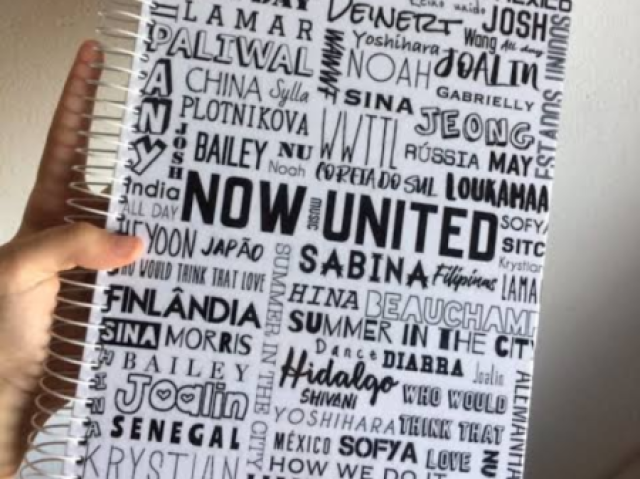 DAY
LAMAR
PALIWAL
ANY
CHINA Sylla
PLOTNIKOVA
JOSH
BAILEY NU
Noah
India
ALL DAY
NOW UNITED
MUSIC
HEYOON JAPÃO
WHO WOULD THINK THAT LOVE
FINLÂNDIA
SINA MORRIS
BAILEY
Joalin
SENEGAL
KRYSTIAN
DEINERT
Reino unido
MÉXICO
JOSH
Yoshihara
Wang All day
WWWT
NOAH
JOALIN
SINA
GABRIELLY
WWTTL
JEONG
RÚSSIA MAY
COREIA DO SUL LOUKAMAA
SOFYA
SABINA Filipinas
SITC
Krystian
LAMA
HINA BEAUCHAMP
SUMMER IN THE CITY
SUMMER IN THE CITY
Dance DIARRA Joalin
Hidalgo
SHIVANI
WHO WOULD
YOSHIHARA THINK THAT
MÉXICO SOFYA LOVE NU
HOW WE DO IT
ALEMANHA